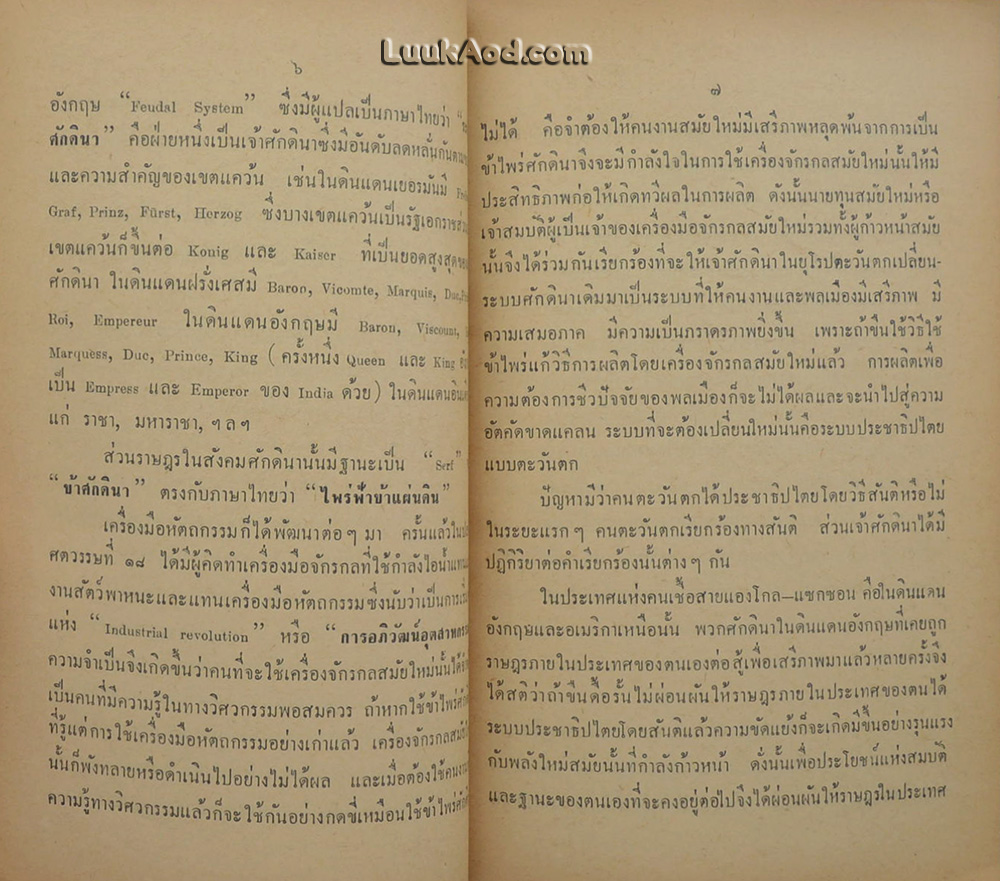 LuukAod.com
๖
อังกฤษ “Feudal System” ซึ่งมีผู้แปลเป็นภาษาไทยว่า
ศักดินา” คือฝ่ายหนึ่งเป็นเจ้าศักดินาซึ่งมีอันดับลดหลั่นกันตาม
และความสำคัญของเขตแคว้น เช่นในดินแดนเยอรมันมี
Graf, Prinz, Fürst, Herzog ซึ่งบางเขตแคว้นเป็นรัฐเอกราช
เขตแคว้นก็ขึ้นต่อ Konig และ Kaiser ที่เป็นยอดสูงสุด
ศักดินา ในดินแดนฝรั่งเศสมี Baron, Vicomte, Marquis, Duc,
Roi, Empereur ในดินแดนอังกฤษมี Baron, Viscount,
Marquess, Duc, Prince, King (ครั้งหนึ่ง Queen และ King
เป็น Empress และ Emperor ของ India ด้วย) ในดินแดน
แก่ ราชา, มหาราชา, ฯลฯ
ส่วนราษฎรในสังคมศักดินานั้นมีฐานะเป็น “Serf”
“ข้าศักดินา” ตรงกับภาษาไทยว่า “ไพร่ฟ้าข้าแผ่นดิน”
เครื่องมือหัตถกรรมก็ได้พัฒนาต่อๆ มา ครั้นแล้วใน
ศตวรรษที่ ๑๘ ได้มีผู้คิดทำเครื่องมือจักรกลที่ใช้กำลังไอน้ำแทน
งานสัตว์พาหนะและแทนเครื่องมือหัตถกรรมซึ่งนับว่าเป็นการ
แห่ง “Industrial revolution” หรือ “การอภิวัฒน์อุตสาหกรรม
ความจำเป็นจึงเกิดขึ้นว่าคนที่จะใช้เครื่องจักรกลสมัยใหม่นั้นได้
เป็นคนที่มีความรู้ในทางวิศวกรรมพอสมควร ถ้าหากใช้ข้าไพร่
ที่รู้แต่การใช้เครื่องมือหัตถกรรมอย่างเก่าแล้ว เครื่องจักรกล
นั้นก็พังทลายหรือดำเนินไปอย่างไม่ได้ผล และเมื่อต้องใช้คนงาน
ความรู้ทางวิศวกรรมแล้วก็จะใช้กันอย่างกดขี่เหมือนใช้ข้าไพร่
๗
ไม่ได้ คือจำต้องให้คนงานสมัยใหม่มีเสรีภาพหลุดพ้นจากการเป็น
ข้าไพร่ศักดินาจึงจะมีกำลังใจในการใช้เครื่องจักรกลสมัยใหม่นั้นให้มี
ประสิทธิภาพก่อให้เกิดทวีผลในการผลิต ดังนั้นนายทุนสมัยใหม่หรือ
เจ้าสมบัติผู้เป็นเจ้าของเครื่องมือจักรกลสมัยใหม่รวมทั้งผู้ก้าวหน้าสมัย
นั้นจึงได้ร่วมกันเรียกร้องที่จะให้เจ้าศักดินาในยุโรปตะวันตกเปลี่ยน-
ระบบศักดินาเดิมมาเป็นระบบที่ให้คนงานและพลเมืองมีเสรีภาพ มี
ความเสมอภาค มีความเป็นภราดรภาพยิ่งขึ้น เพราะถ้าขืนใช้วิธีใช้
ข้าไพร่แก้วิธีการผลิตโดยเครื่องจักรกลสมัยใหม่แล้ว การผลิตเพื่อ
ความต้องการชีวปัจจัยของพลเมืองก็จะไม่ได้ผลและจะนำไปสู่ความ
อัตคัดขาดแคลน ระบบที่จะต้องเปลี่ยนใหม่นั้นคือระบบประชาธิปไตย
แบบตะวันตก
ปัญหามีว่าคนตะวันตกได้ประชาธิปไตยโดยวิธีสันติหรือไม่
ในระยะแรกๆ คนตะวันตกเรียกร้องทางสันติ ส่วนเจ้าศักดินาได้มี
ปฏิกิริยาต่อคำเรียกร้องนั้นต่างๆ กัน
ในประเทศแห่งคนเชื้อสายแองโกล—แซกซอน คือในดินแดน
อังกฤษและอเมริกาเหนือนั้น พวกศักดินาในดินแดนอังกฤษที่เคยถูก
ราษฎรภายในประเทศของตนเองต่อสู้เพื่อเสรีภาพมาแล้วหลายครั้งจึง
ได้สติว่าถ้าขืนดื้อรั้นไม่ผ่อนผันให้ราษฎรภายในประเทศของตนได้
ระบบประชาธิปไตยโดยสันติแล้วความขัดแย้งก็จะเกิดมีขึ้นอย่างรุนแรง
กับพลังใหม่สมัยนั้นที่กำลังก้าวหน้า ดั่งนั้นเพื่อประโยชน์แห่งสมบัติ
และฐานะของตนเองที่จะคงอยู่ต่อไปจึงได้ผ่อนผันให้ราษฎรในประเทศ